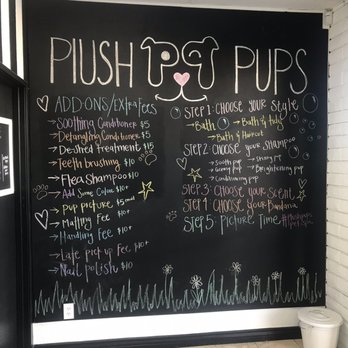 PLUSH PUPS
ADD-ONS/Extra Fees
Soothing Conditioner $5
Detangling Conditioner $5
De-Shed Treatment $15
Teeth brushing $10
Flea Shampoo $10
Add Some Color $10+
Pup picture $5
Matting Fee $10+
Handling Fee $10+
Late pick up Fee $10+
Nail polish $10
STEP 1: CHOOSE your Style
Bath
Bath & tidy
Bath & Haircut
STEP 2: CHOOSE your SHAMPOO
Sooth pup
Shiny pup
Groovy pup
Brightening pup
Conditioning pup
STEP 3: CHOOSE your Scent
STEP 4: CHOOSE your Bandana
STEP 5: Picture Time